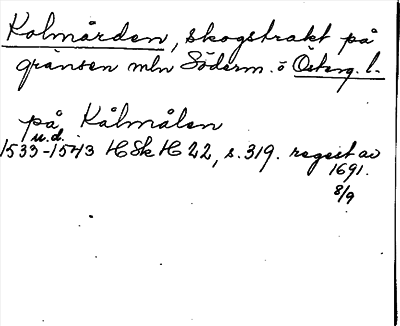 Kolmården, skogstrakt på
gränsen mln Söderm. o Österg. l.
på Kålmålen
u.d.
1533-1543 HSkH 22, s. 319. regest av
1691.
8/9